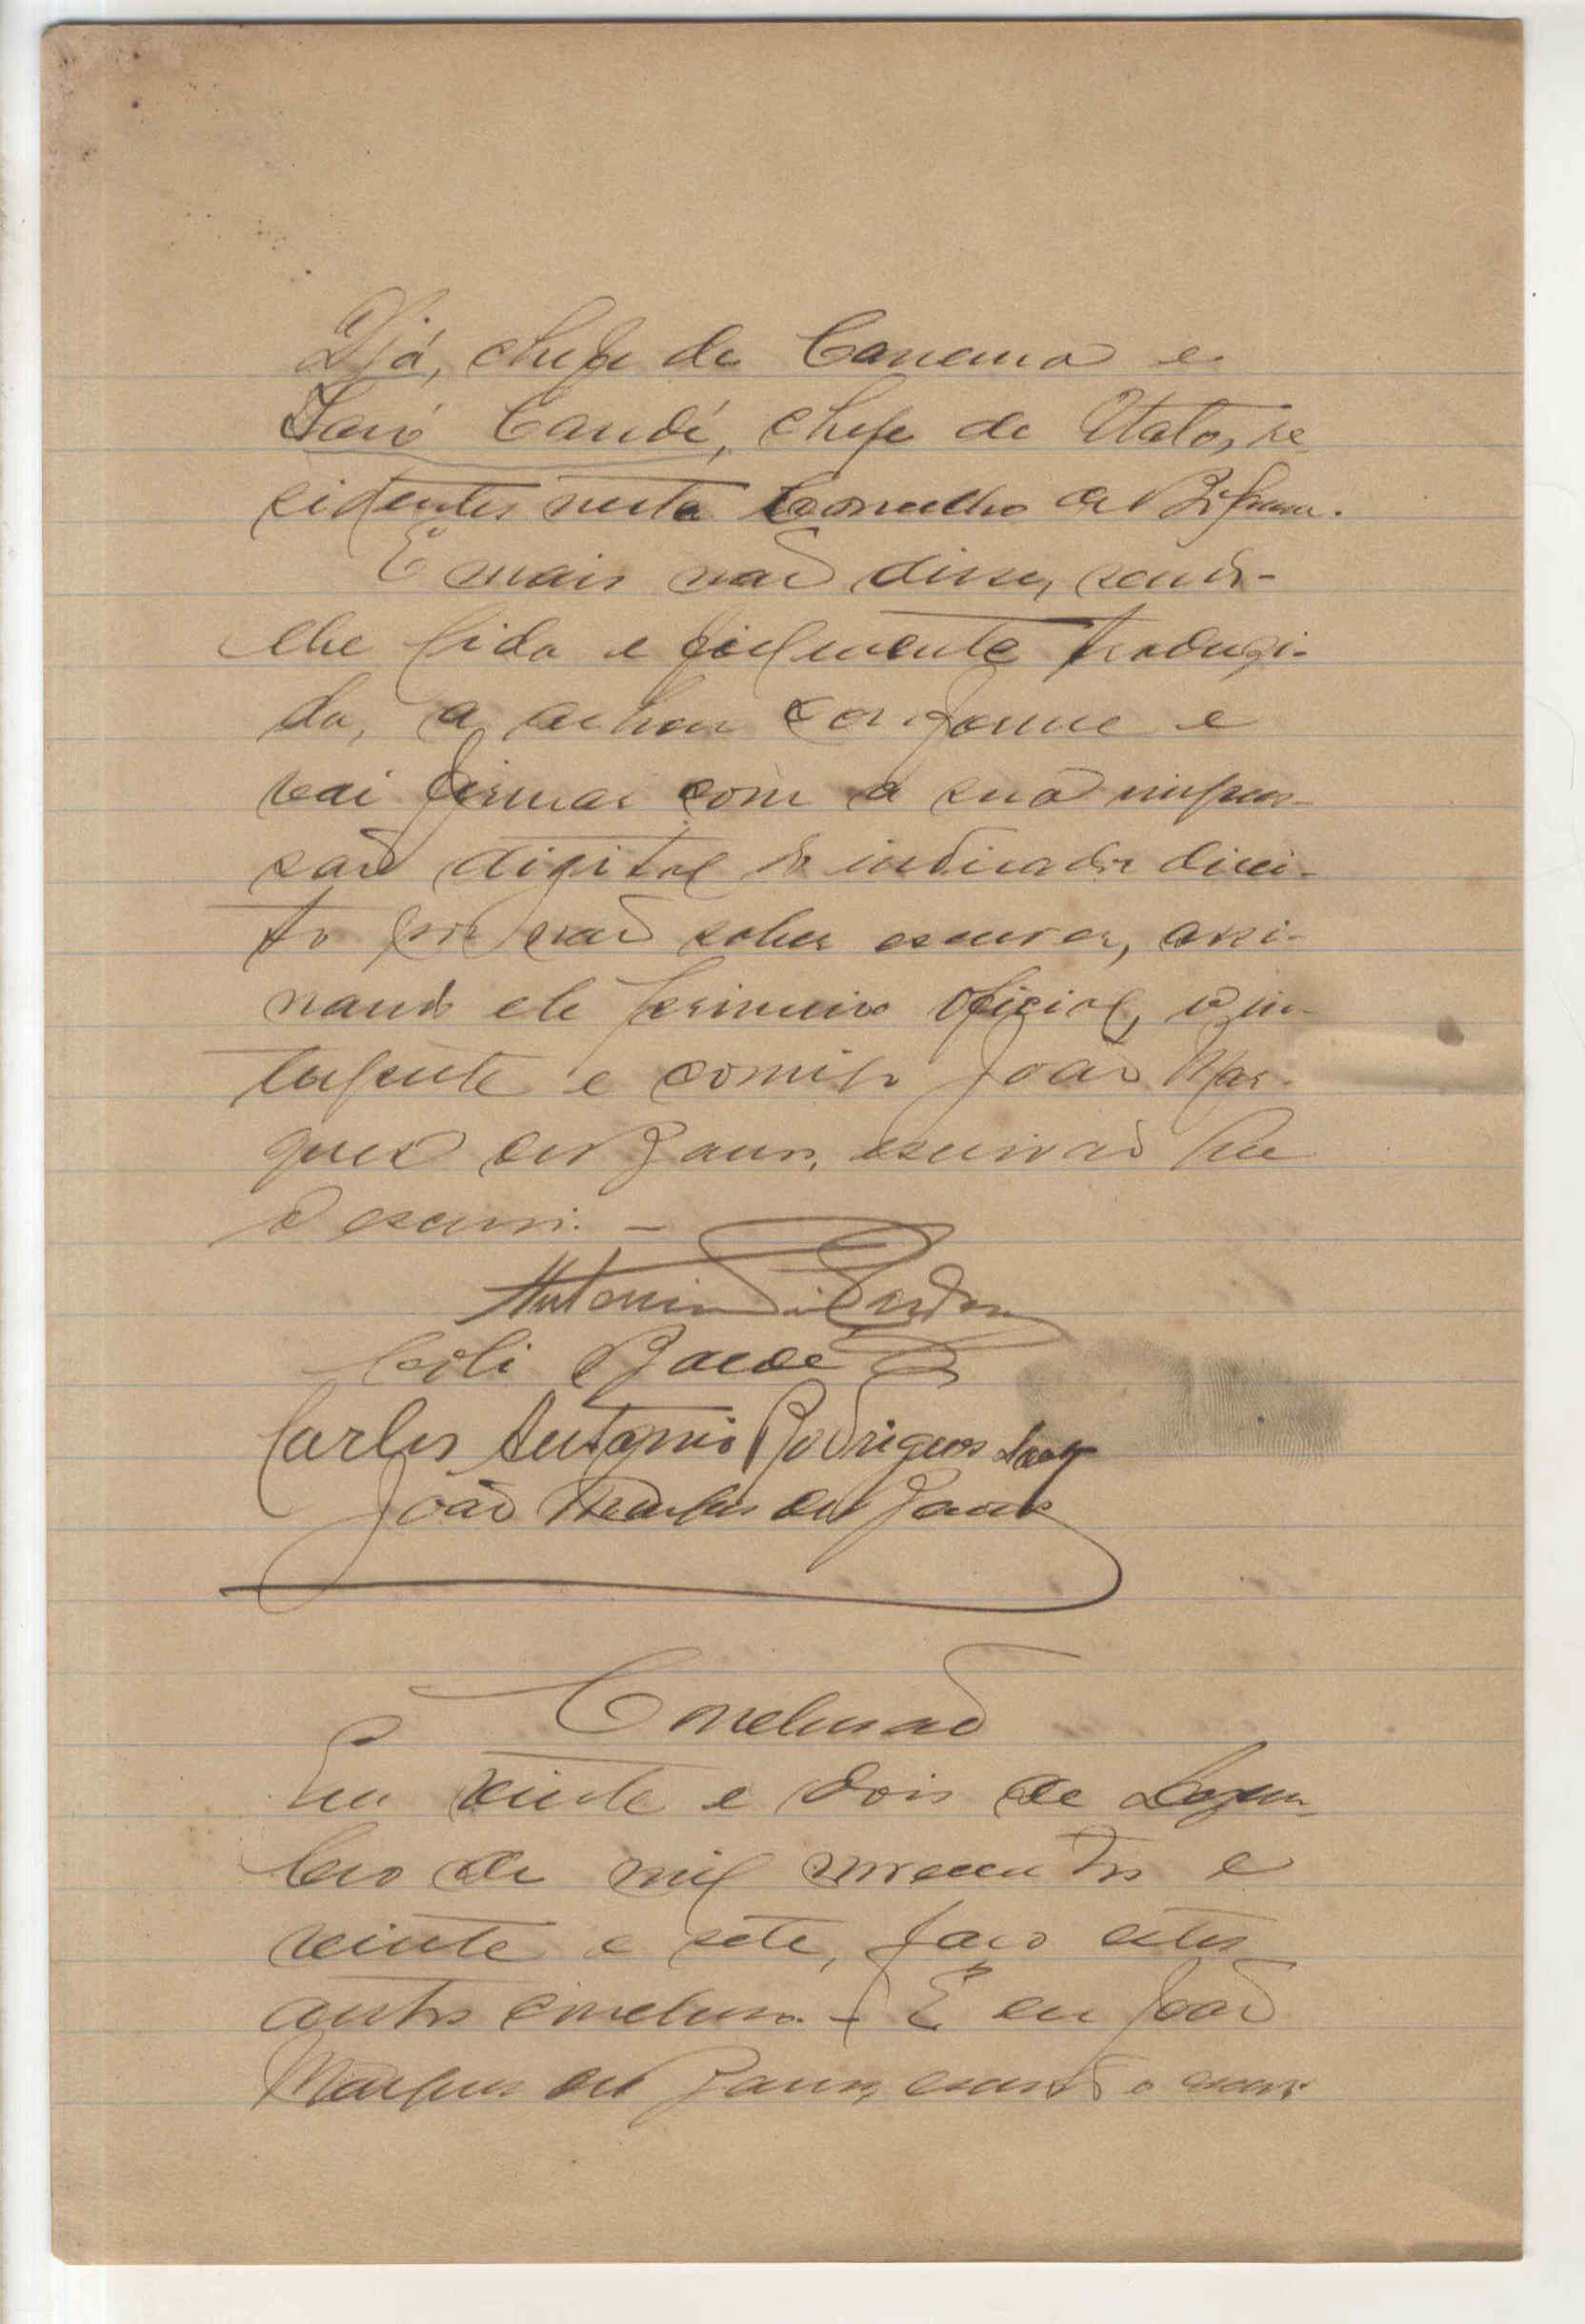 Djá, chefe de Canema e
Saió Candé, chefe de Utato, re
sidentes neste Concelho de Bafata.
E mais não disse, sendo-
lhe lida e fielmente traduzi-
da, a achou conforme e
vai firmar com a sua impres-
são digital do indicador direi-
to por não saber escrever, assi-
nando ele primeiro oficial, o in-
terprete e comigo João Mar-
ques de escrivão que
o escrevi. —
Antonio
Baldé
Carlos Antonio Rodrigues
João Marques de
Conclusão
Em vinte e dois de Dezem-
bro de mil novecentos e
vinte e sete, faço estes
autos conclusos. — E eu João
Marques de escrivão o escrevi